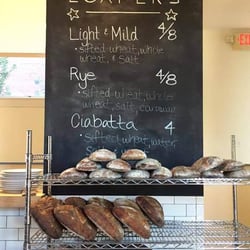 LOAFERS
Light & Mild 4/8
• sifted wheat, whole
wheat, & salt
Rye 4/8
• sifted wheat, whole
wheat, salt, caraway
Ciabatta 4
• sifted wheat, water,